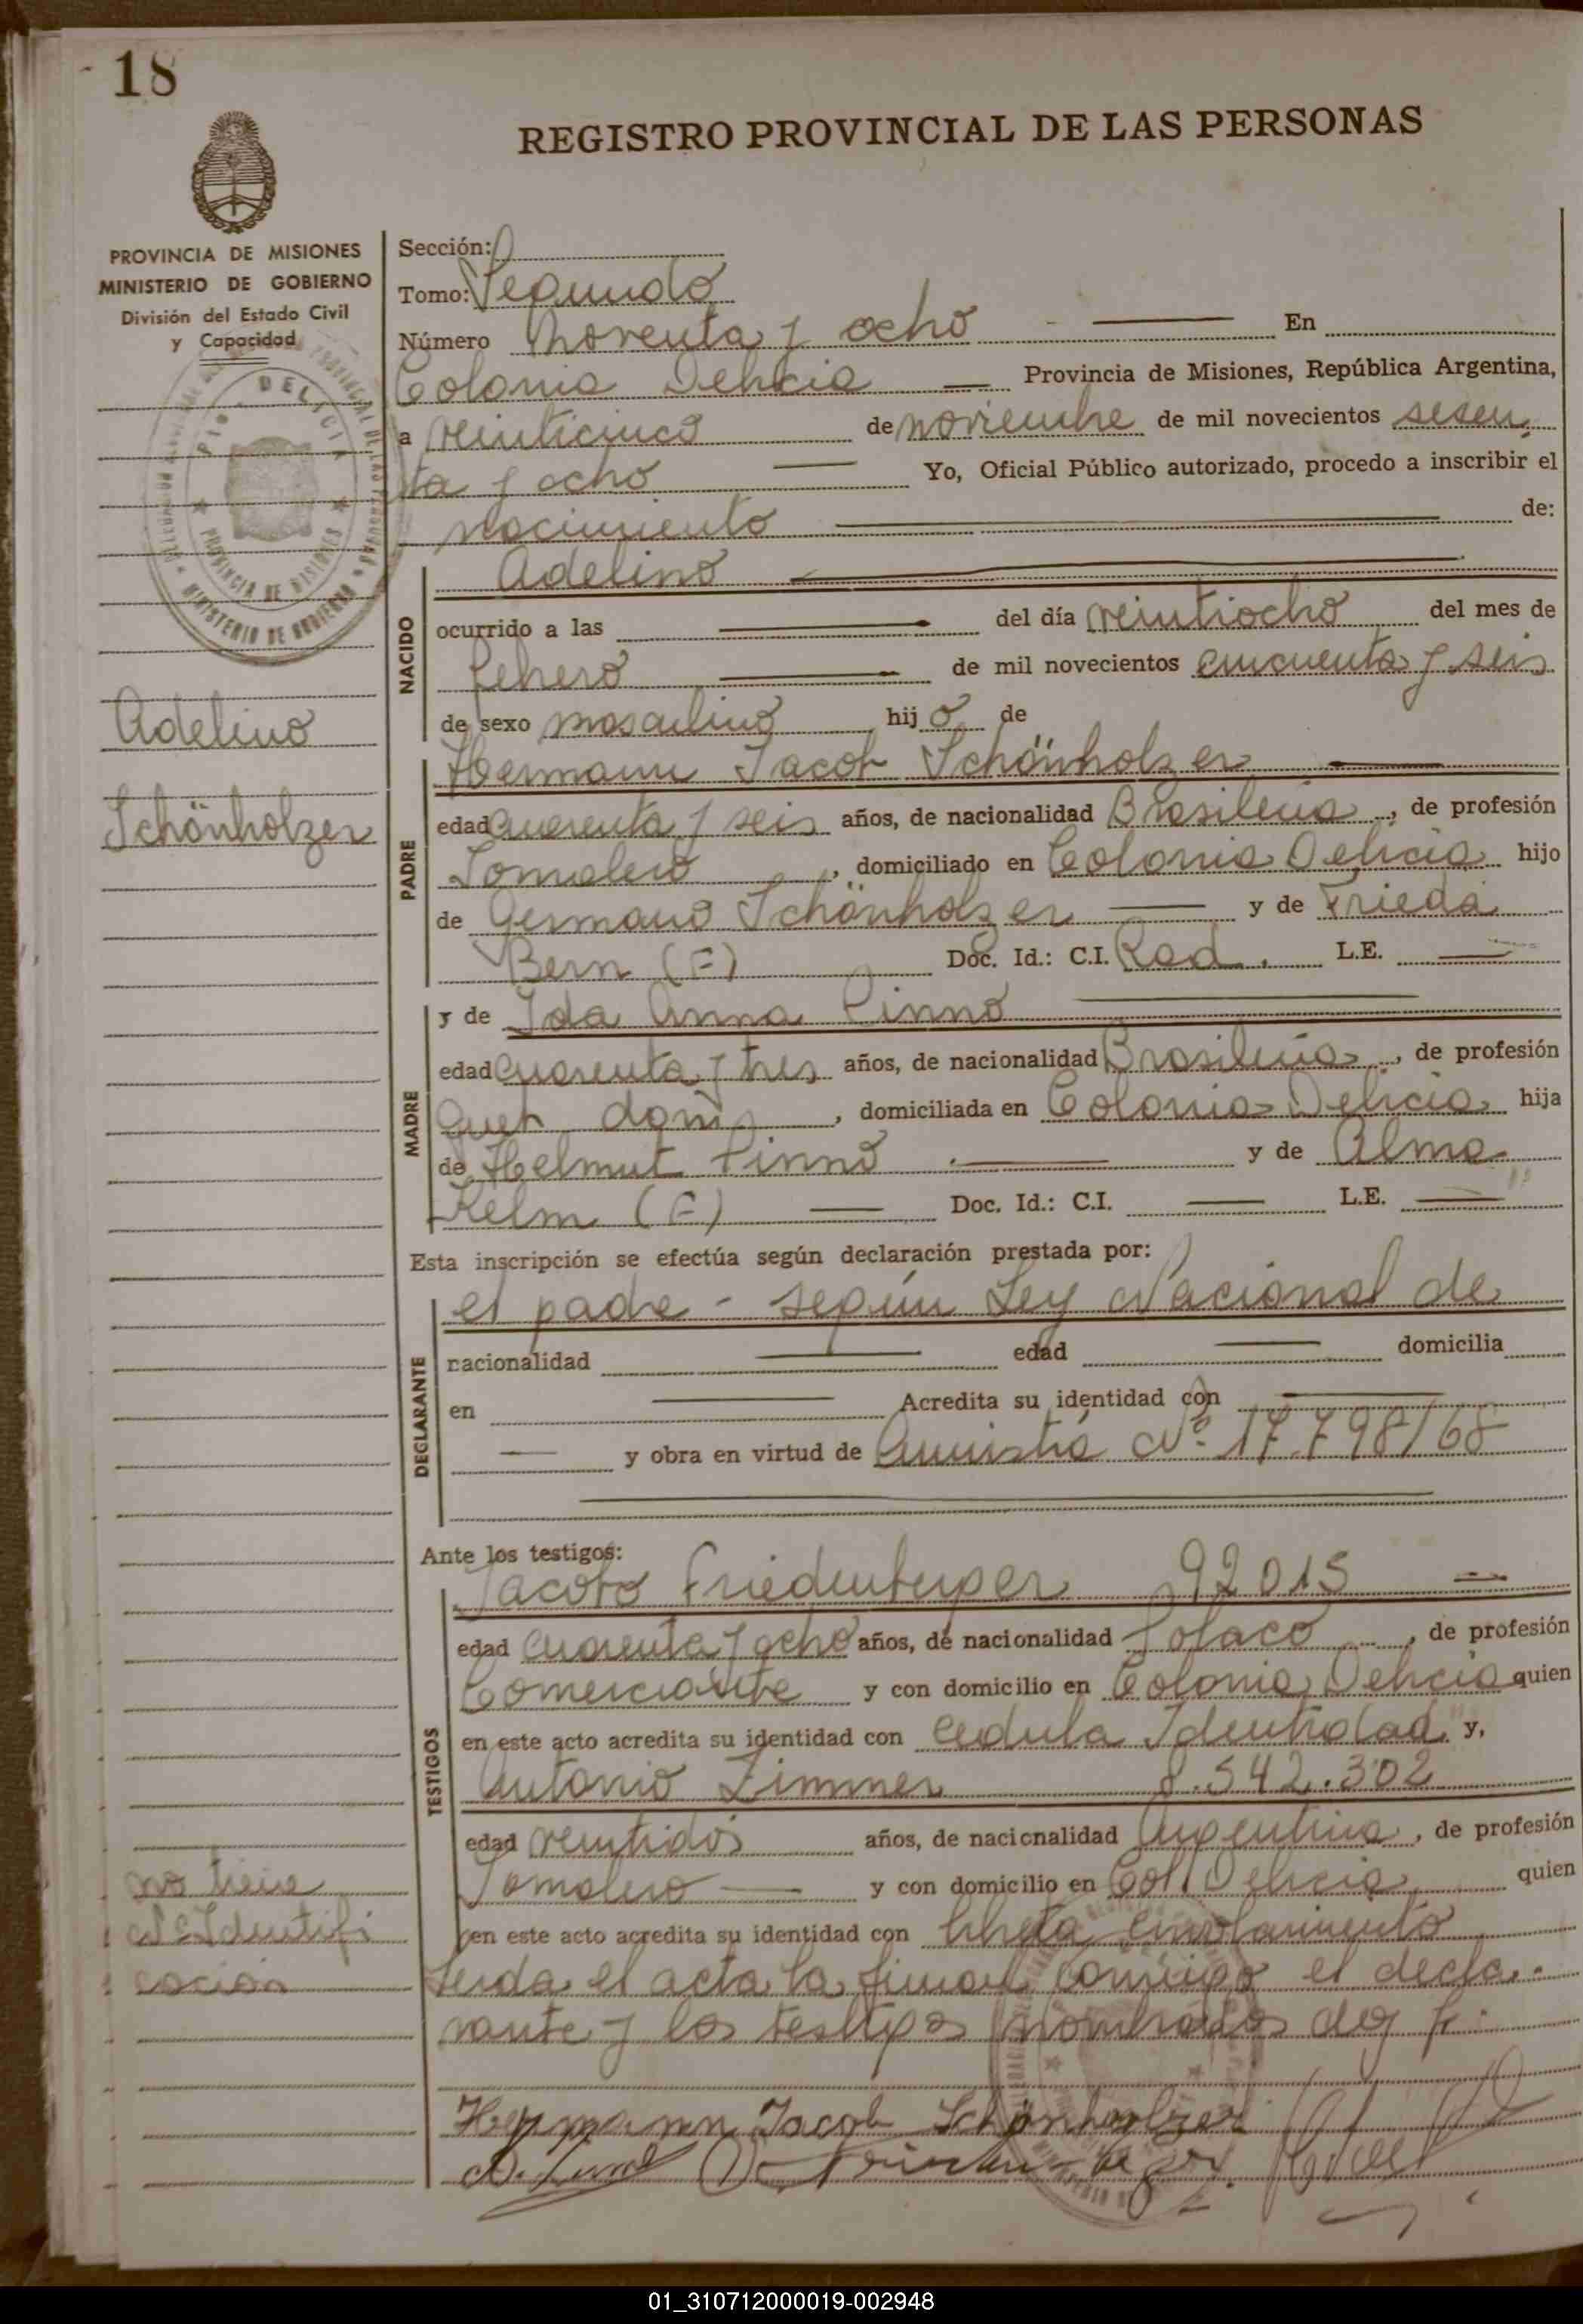 18
REGISTRO PROVINCIAL DE LAS PERSONAS
PROVINCIA DE MISIONES
MINISTERIO DE GOBIERNO
División del Estado Civil
y Capacidad
Adelino
Schönholzer
no tiene
Nº Identifi
cación
Sección:
Tomo: Segundo
Número Noventa y ocho En
Colonia Delicia Provincia de Misiones, República Argentina,
a veinticinco de noviembre de mil novecientos sesen
ta y ocho Yo, Oficial Público autorizado, procedo a inscribir el
nacimiento de:
NACIDO
Adelino
ocurrido a las del día veintiocho del mes de
febrero de mil novecientos cincuenta y seis
de sexo masculino hijo de
PADRE
Hermann Jacob Schönholzer
edad cuarenta y seis años, de nacionalidad Brasileña, de profesión
Jornalero, domiciliado en Colonia Delicia hijo
de Germano Schönholzer y de Frieda
Bern (F) Doc. Id.: C.I. Rad. L.E.
MADRE
y de Ida Anna Pinno
edad cuarenta y tres años, de nacionalidad Brasileña, de profesión
Queh. dom., domiciliada en Colonia Delicia hija
de Helmut Pinno y de Alma
Kelm (F) Doc. Id.: C.I. L.E.
Esta inscripción se efectúa según declaración prestada por:
DECLARANTE
el padre - según Ley Nacional de
nacionalidad edad domicilia
en Acredita su identidad con
y obra en virtud de Amnistía Nº 17.798/68
Ante los testigos:
TESTIGOS
Jacobo 92015
edad cuarenta y ocho años, de nacionalidad Polaco, de profesión
Comerciante y con domicilio en Colonia Delicia quien
en este acto acredita su identidad con Cedula Identidad y,
Antonio Zimmer 8.542.302
edad veintidós años, de nacionalidad Argentina, de profesión
Jornalero y con domicilio en Col. Delicia quien
en este acto acredita su identidad con libreta enrolamiento
Leida el acta la firman conmigo el decla-
rante y los testigos nombrados doy fe.
Hermann Jacob Schönholzer
01_310712000019-002948